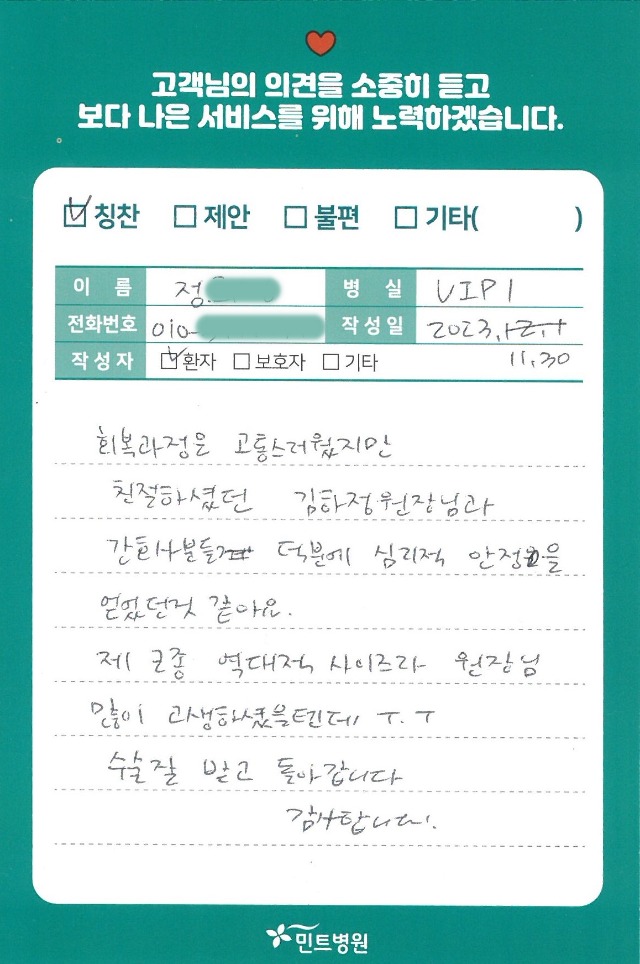 고객님의 의견을 소중히 듣고
보다 나은 서비스를 위해 노력하겠습니다.
칭찬 제안 불편 기타( )
이 름 정 병 실 VIP1
전화번호 010- 작성일 2023.
작성자 환자 보호자 기타 11.30
회복과정은 고통스러웠지만
친절하셨던 김하정원장님과
간호사분들 덕분에 심리적 안정을
얻었던것 같아요.
제 근종 역대적 사이즈라 원장님
많이 고생하셨을텐데 ㅜ.ㅜ
수술잘 받고 돌아갑니다
감사합니다!
민트병원